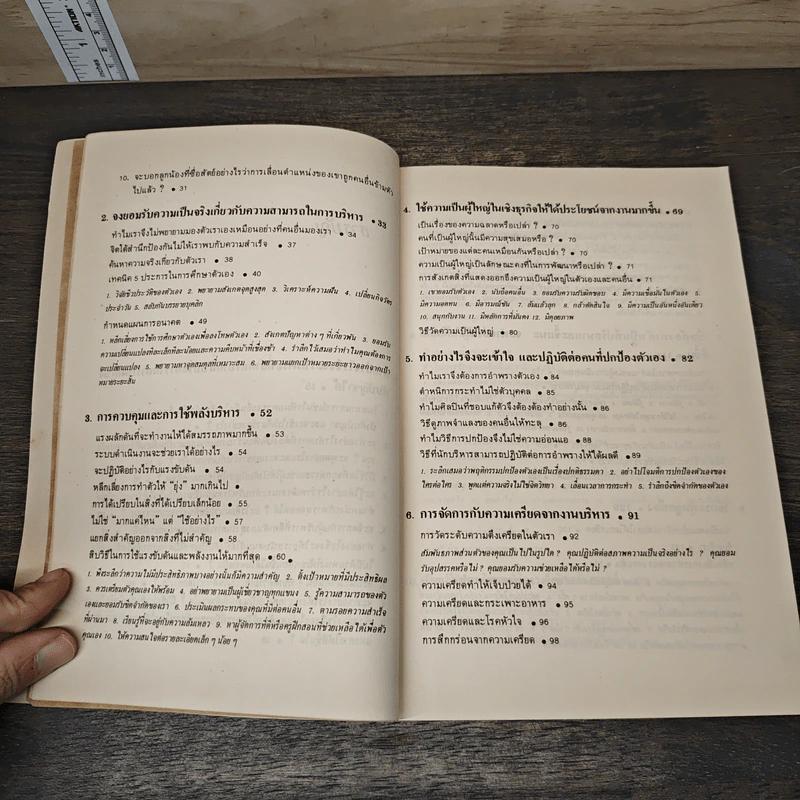 10. จะบอกลูกน้องที่ซื่อสัตย์อย่างไรว่าการเลื่อนตำแหน่งของเขาถูกคนอื่นข้ามหัว
ไปแล้ว ? • 31
2. จงยอมรับความเป็นจริงเกี่ยวกับความสามารถในการบริหาร • 33
ทำไมเราจึงไม่พยายามมองตัวเราเองเหมือนอย่างที่คนอื่นมองเรา • 34
จิตใต้สำนึกป้องกันไม่ให้เราพบกับความสำเร็จ • 37
ค้นหาความจริงเกี่ยวกับตัวเรา • 38
เทคนิค 5 ประการในการศึกษาตัวเอง • 40
1. วิจัยชีวประวัติของตัวเอง 2. พยายามสังเกตจุดสูงสุด 3. วิเคราะห์ความฝัน 4. เปลี่ยนกิจวัตร
ประจำวัน 5. สลับกันบรรยายบุคลิก
กำหนดแผนการอนาคต • 49
1. หลีกเลี่ยงการใช้การศึกษาตัวเองเพื่อลงโทษตัวเอง 2. สังเกตปัญหาต่าง ๆ ที่เกี่ยวพัน 3. ยอมรับ
ความเปลี่ยนแปลงทีละเล็กทีละน้อยและความคืบหน้าที่เชื่องช้า 4. รำลึกไว้เสมอว่าทำไมคุณต้องการ
จะเปลี่ยนแปลง 5. พยายามหาจุดสมดุลที่เหมาะสม 6. พยายามแยกเป้าหมายระยะยาวออกจากเป้า
หมายระยะสั้น
3. การควบคุมและการใช้พลังบริหาร • 52
แรงผลักดันที่จะทำงานให้ได้สมรรถภาพมากขึ้น • 53
ระบบดำเนินงานจะช่วยเราได้อย่างไร • 54
จะปฏิบัติอย่างไรกับแรงขับดัน • 54
หลีกเลี่ยงการทำตัวให้ "ยุ่ง" มากเกินไป •
การได้เปรียบในสิ่งที่ได้เปรียบเล็กน้อย • 55
ไม่ใช่ "มากแค่ไหน" แต่ "ใช้อย่างไร" • 57
แยกสิ่งสำคัญออกจากสิ่งที่ไม่สำคัญ • 58
สิบวิธีในการใช้แรงขับดันและพลังงานให้มากที่สุด • 60
1. พึงระลึกว่าความไม่มีประสิทธิภาพบางอย่างนั้นก็มีความสำคัญ 2. ตั้งเป้าหมายที่มีประสิทธิผล
3. ควรเตรียมตัวคุณเองให้พร้อม 4. อย่าพยายามเป็นผู้เชี่ยวชาญทุกแขนง 5. รู้ความสามารถของตัว
เองและยอมรับขีดจำกัดของเรา 6. ประเมินผลกระทบของคุณที่มีต่อคนอื่น 7. ตามรอยความสำเร็จ
ที่ผ่านมา 8. เรียนรู้ที่จะอยู่กับความล้มเหลว 9. หาผู้จัดการที่ดีหรือครูฝึกสอนที่ช่วยเหลือได้เพื่อตัว
คุณเอง 10. ให้ความสนใจต่อรายละเอียดเล็ก ๆ น้อย ๆ
4. ใช้ความเป็นผู้ใหญ่ในเชิงธุรกิจให้ได้ประโยชน์จากงานมากขึ้น • 69
เป็นเรื่องของความฉลาดหรือเปล่า ? • 70
คนที่เป็นผู้ใหญ่นั้นมีความสุขเสมอหรือ ? • 70
เป้าหมายของแต่ละคนเหมือนกันหรือเปล่า ? • 70
ความเป็นผู้ใหญ่เป็นลักษณะคงที่ในการพัฒนาหรือเปล่า ? • 71
การสังเกตสิ่งที่แสดงออกถึงความเป็นผู้ใหญ่ในตัวเองและคนอื่น • 71
1. เขายอมรับตัวเอง 2. นับถือคนอื่น 3. ยอมรับความรับผิดชอบ 4. มีความเชื่อมั่นในตัวเอง 5.
มีความอดทน 6. มีอารมณ์ขัน 7. ล้มแล้วลุก 8. กล้าตัดสินใจ 9. มีความเป็นอันหนึ่งอันเดียว
10. สนุกกับงาน 11. มีหลักการที่มั่นคง 12. มีดุลยภาพ
วิธีวัดความเป็นผู้ใหญ่ • 80
5. ทำอย่างไรจึงจะเข้าใจ และปฏิบัติต่อคนที่ปกป้องตัวเอง • 82
ทำไมเราจึงต้องการอำพรางตัวเอง • 84
ตำหนิการกระทำไม่ใช่ตัวบุคคล • 85
ทำไมศิลปินที่ชอบแก้ตัวจึงต้องต้องทำอย่างนั้น • 86
วิธีดูภาพจำแลงของคนอื่นให้ทะลุ • 86
ทำไมวิธีการปกป้องจึงไม่ใช่ความอ่อนแอ • 88
วิธีที่นักบริหารสามารถปฏิบัติต่อการอำพรางให้ได้ผลดี • 89
1. ระลึกเสมอว่าพฤติกรรมปกป้องตัวเองเป็นเรื่องปกติธรรมดา 2. อย่าไปโจมตีการปกป้องตัวเองของ
ใครต่อใคร 3. พูดแต่ความจริงไม่ใช่จิตวิทยา 4. เลื่อนเวลาการกระทำ 5. รำลึกถึงขีดจำกัดของตัวเอง
6. การจัดการกับความเครียดจากงานบริหาร • 91
การวัดระดับความตึงเครียดในตัวเรา • 92
สัมพันธภาพส่วนตัวของคุณเป็นไปในรูปใด ? คุณปฏิบัติต่อสภาพความเป็นจริงอย่างไร ? คุณยอม
รับอุปสรรคหรือไม่ ? คุณยอมรับความช่วยเหลือได้หรือไม่ ?
ความเครียดทำให้เจ็บป่วยได้ • 94
ความเครียดและกระเพาะอาหาร • 95
ความเครียดและโรคหัวใจ • 96
การสึกกร่อนจากความเครียด • 98